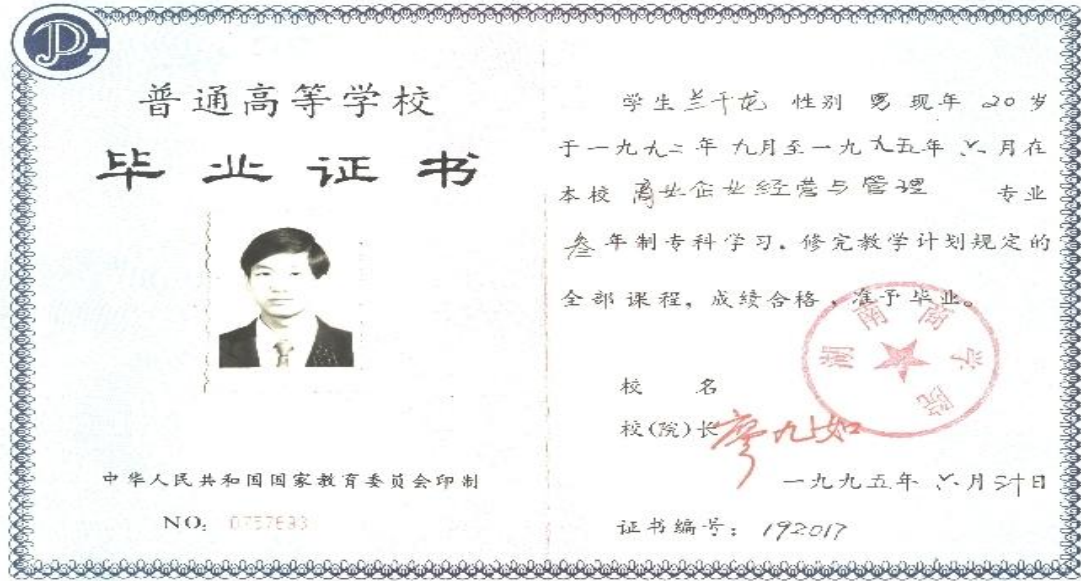 普通高等学校
毕业证书
中华人民共和国国家教育委员会印制
NO: 0757693
学生兰千龙 性别 男 现年 20 岁
于一九九二年九月至一九九五年六月在
本校 商业企业经营与管理 专业
叁年制专科学习.修完教学计划规定的
全部课程,成绩合格,准予毕业。
湖南商学院
校 名
校(院)长廖九如
一九九五年六月 日
证书编号: 192017